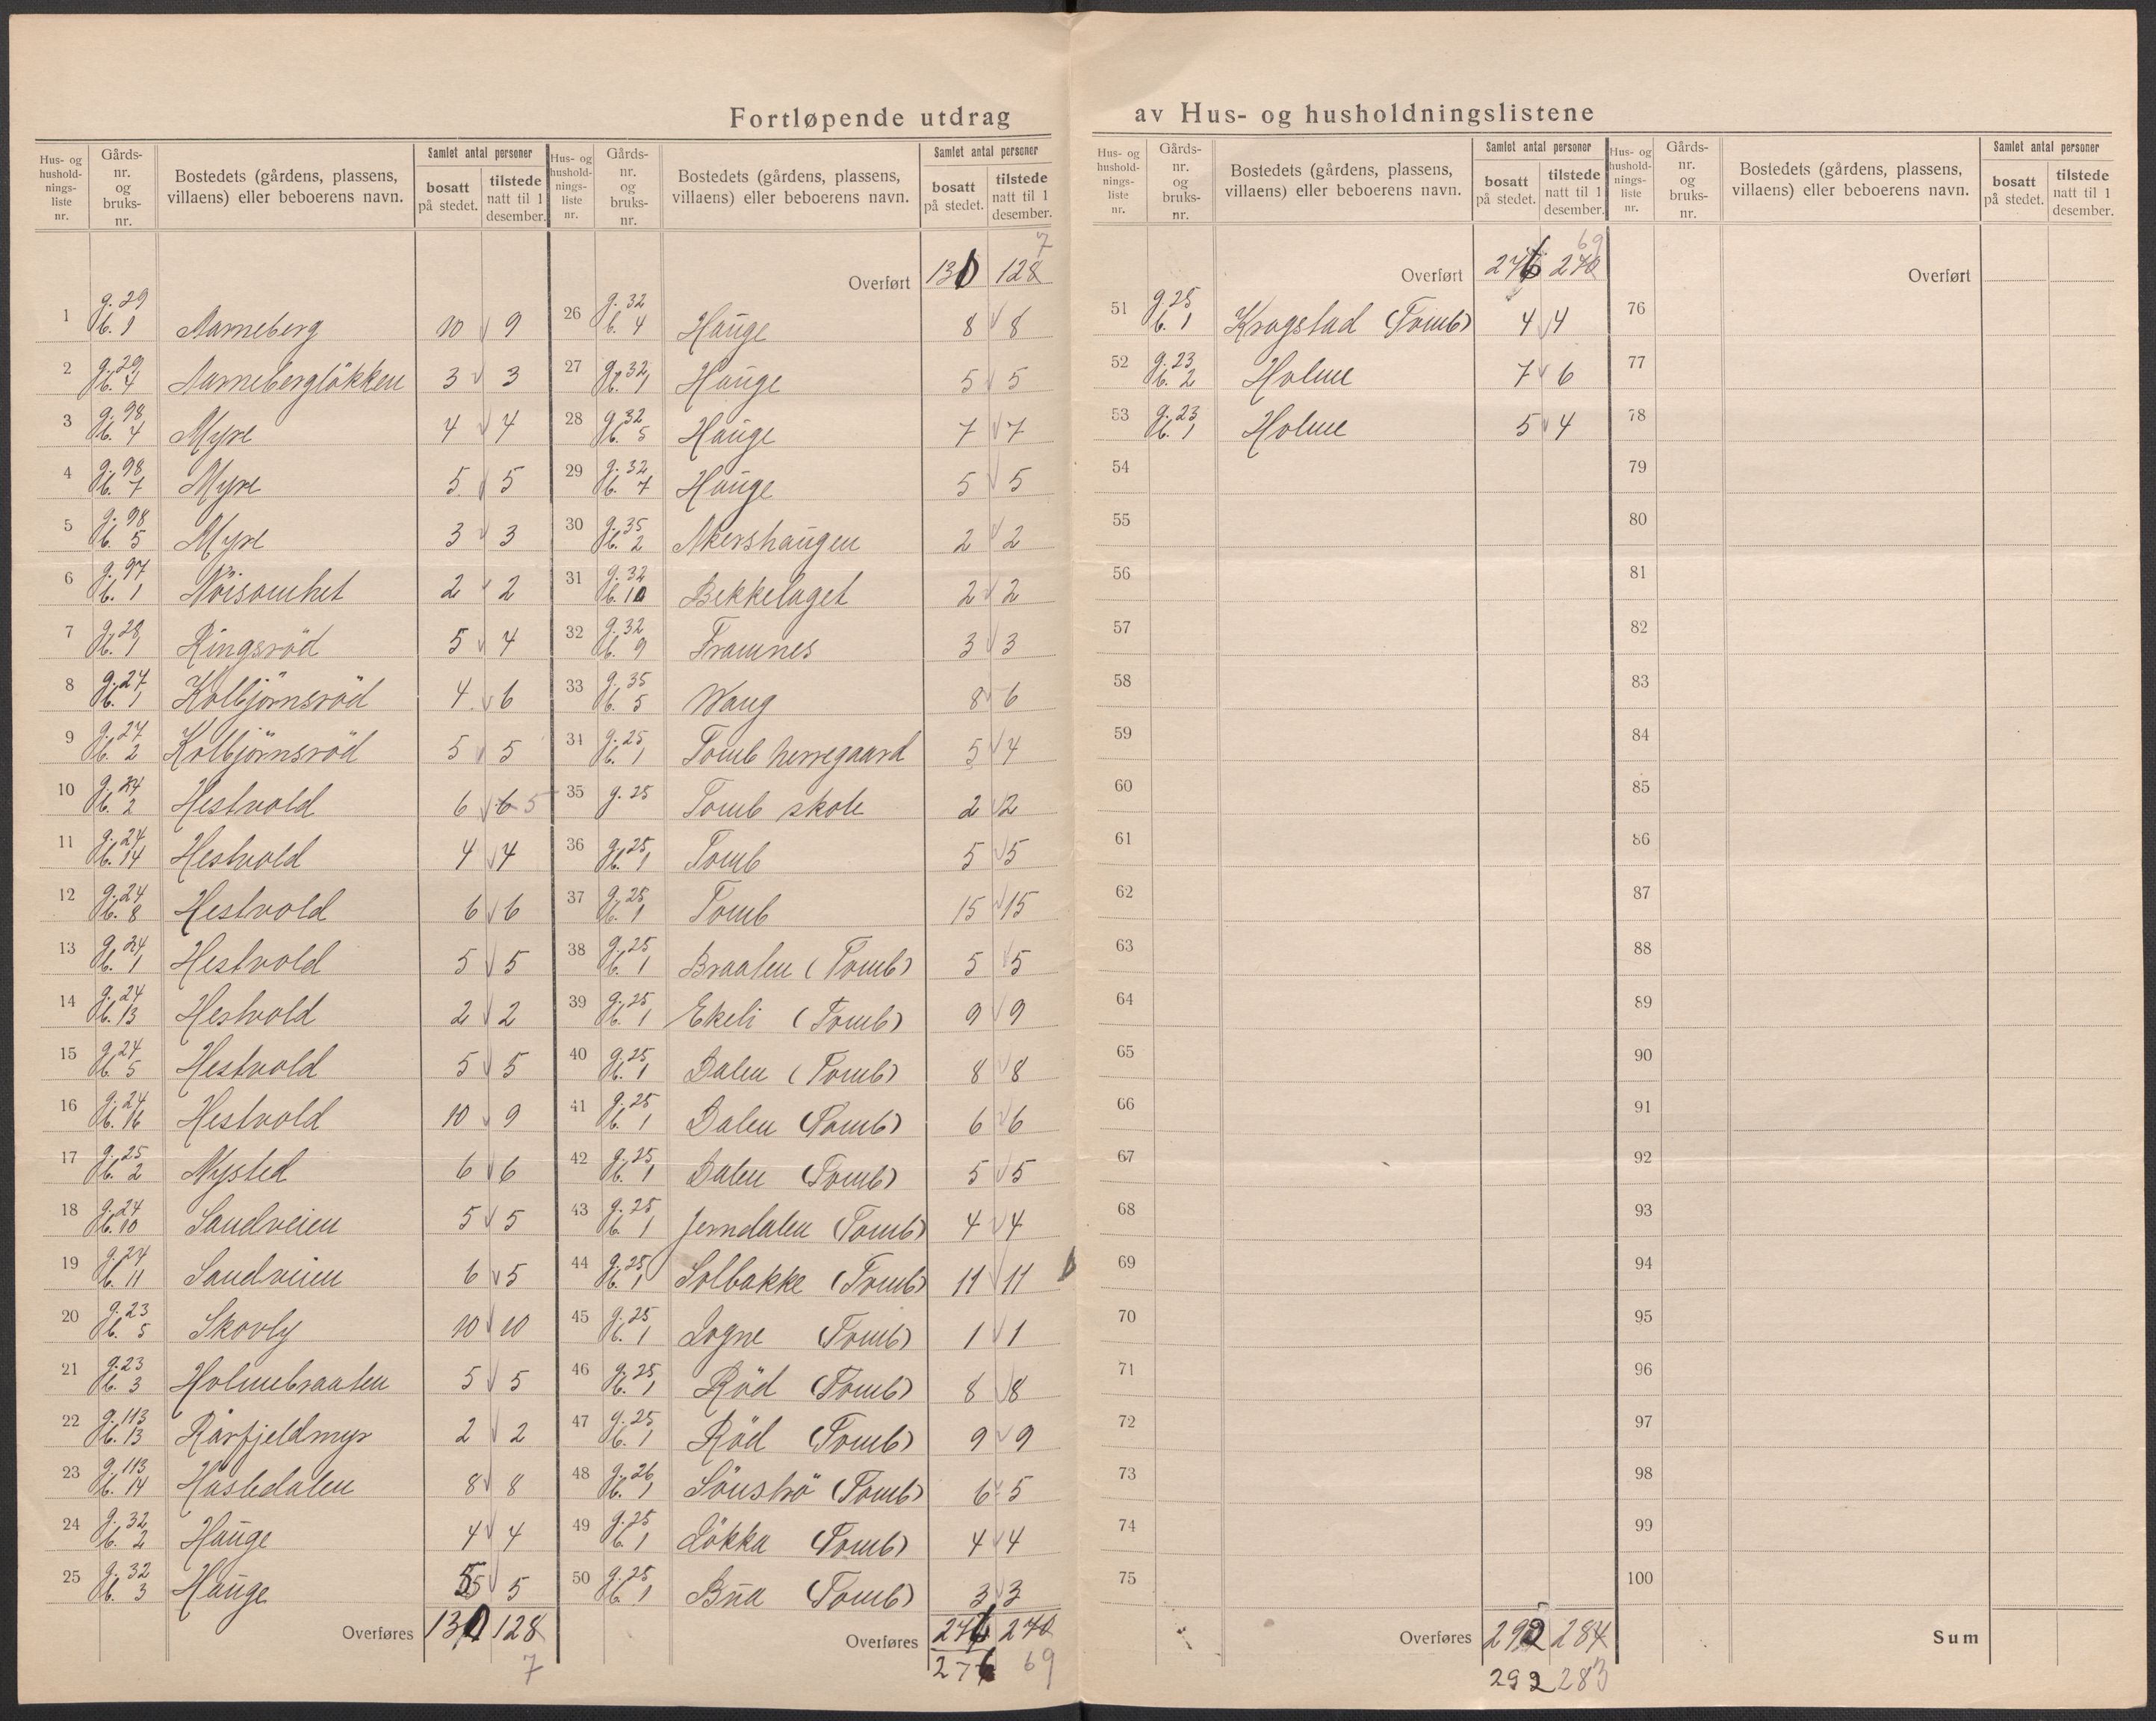 Fortløpende utdrag av Hus- og husholdningslistene
Hus- og hushold-nings-liste nr. Gårds-nr. og bruks-nr. Bostedets (gårdens, plassens, villaens) eller beboerens navn. Samlet antal personer bosatt på stedet. tilstede natt til 1 desember.
1 g. 29 b. 1 Aarneberg 10 9
2 g. 29 b. 4 Aarneberglökken 3 3
3 g. 98 b. 4 Myre 4 4
4 g. 98 b. 7 Myre 5 5
5 g. 98 b. 5 Myre 3 3
6 g. 97 b. 1 Nöisomhet 2 2
7 g. 28 b. 1 Ringsröd 5 4
8 g. 27 b. 1 Kolbjörnsröd 4 6
9 g. 27 b. 2 Kolbjörnsröd 5 5
10 g. 24 b. 2 Hestvold 6 6 5
11 g. 24 b. 14 Hestvold 4 4
12 g. 24 b. 8 Hestvold 6 6
13 g. 24 b. 1 Hestvold 5 5
14 g. 24 b. 13 Hestvold 2 2
15 g. 24 b. 5 Hestvold 5 5
16 g. 24 b. 16 Hestvold 10 9
17 g. 25 b. 2 Nysted 6 6
18 g. 24 b. 10 Sandveien 5 5
19 g. 24 b. 11 Sandveien 6 5
20 g. 23 b. 5 Skovly 10 10
21 g. 23 b. 3 Holmebraaten 5 5
22 g. 113 b. 13 Rörfjeldmyr 2 2
23 g. 113 b. 14 Hasledalen 8 8
24 g. 32 b. 2 Hauge 4 4
25 g. 32 b. 3 Hauge 5 5
Overføres 130 128
7
Hus- og hushold-nings-liste nr. Gårds-nr. og bruks-nr. Bostedets (gårdens, plassens, villaens) eller beboerens navn. Samlet antal personer bosatt på stedet. tilstede natt til 1 desember.
7
Overført 130 128
26 g. 32 b. 4 Hauge 8 8
27 g. 32 b. 1 Hauge 5 5
28 g. 32 b. 5 Hauge 7 7
29 g. 32 b. 7 Hauge 5 5
30 g. 35 b. 2 Akershaugen 2 2
31 g. 32 b. 10 Bekkelaget 2 2
32 g. 32 b. 9 Framnes 3 3
33 g. 35 b. 5 Wang 8 6
34 g. 25 b. 1 Tomb herregaard 5 4
35 g. 25 Tomb skole 2 2
36 g. 25 b. 1 Tomb 5 5
37 g. 25 b. 1 Tomb 15 15
38 g. 25 b. 1 Braaten (Tomb) 5 5
39 g. 25 b. 1 Ekeli (Tomb) 9 9
40 g. 25 b. 1 Dalen (Tomb) 8 8
41 g. 25 b. 1 Dalen (Tomb) 6 6
42 g. 25 b. 1 Dalen (Tomb) 5 5
43 g. 25 b. 1 Jerndalen (Tomb) 4 4
44 g. 25 b. 1 Solbakke (Tomb) 11 11
45 g. 25 b. 1 Logne (Tomb) 1 1
46 g. 25 b. 1 Röd (Tomb) 8 8
47 g. 25 b. 1 Röd (Tomb) 9 9
48 g. 26 b. 1 Sönströ (Tomb) 6 5
49 g. 25 b. 1 Lökka (Tomb) 4 4
50 g. 25 b. 1 Bua (Tomb) 3 3
Overføres 276 270
276 69
Hus- og hushold-nings-liste nr. Gårds-nr. og bruks-nr. Bostedets (gårdens, plassens, villaens) eller beboerens navn. Samlet antal personer bosatt på stedet. tilstede natt til 1 desember.
69
Overført 276 270
51 g. 25 b. 1 Kragstad (Tomb) 4 4
52 g. 23 b. 2 Holme 7 6
53 g. 23 b. 1 Holme 5 4
54
55
56
57
58
59
60
61
62
63
64
65
66
67
68
69
70
71
72
73
74
75
Overføres 292 284
292 283
Hus- og hushold-nings-liste nr. Gårds-nr. og bruks-nr. Bostedets (gårdens, plassens, villaens) eller beboerens navn. Samlet antal personer bosatt på stedet. tilstede natt til 1 desember.
Overført
76
77
78
79
80
81
82
83
84
85
86
87
88
89
90
91
92
93
94
95
96
97
98
99
100
Sum